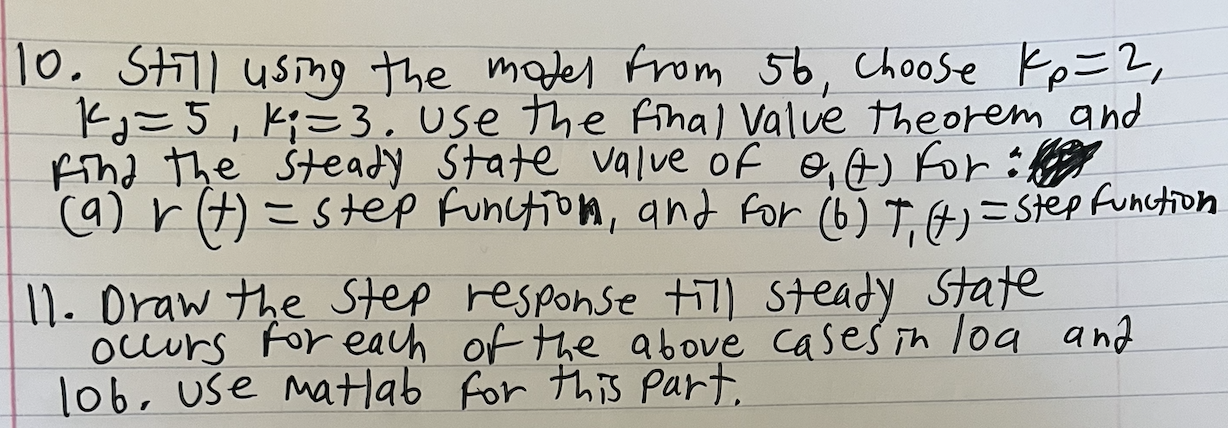 10. Still using the model from 5b, choose Kp=2,
Kd=5, Ki=3. Use the final value theorem and
find the steady state value of θ₁(t) for:
(a) r(t) = step function, and for (b) T₁(t) = step function
11. Draw the step response till steady state
occurs for each of the above cases in 10a and
10b. Use Matlab for this part.